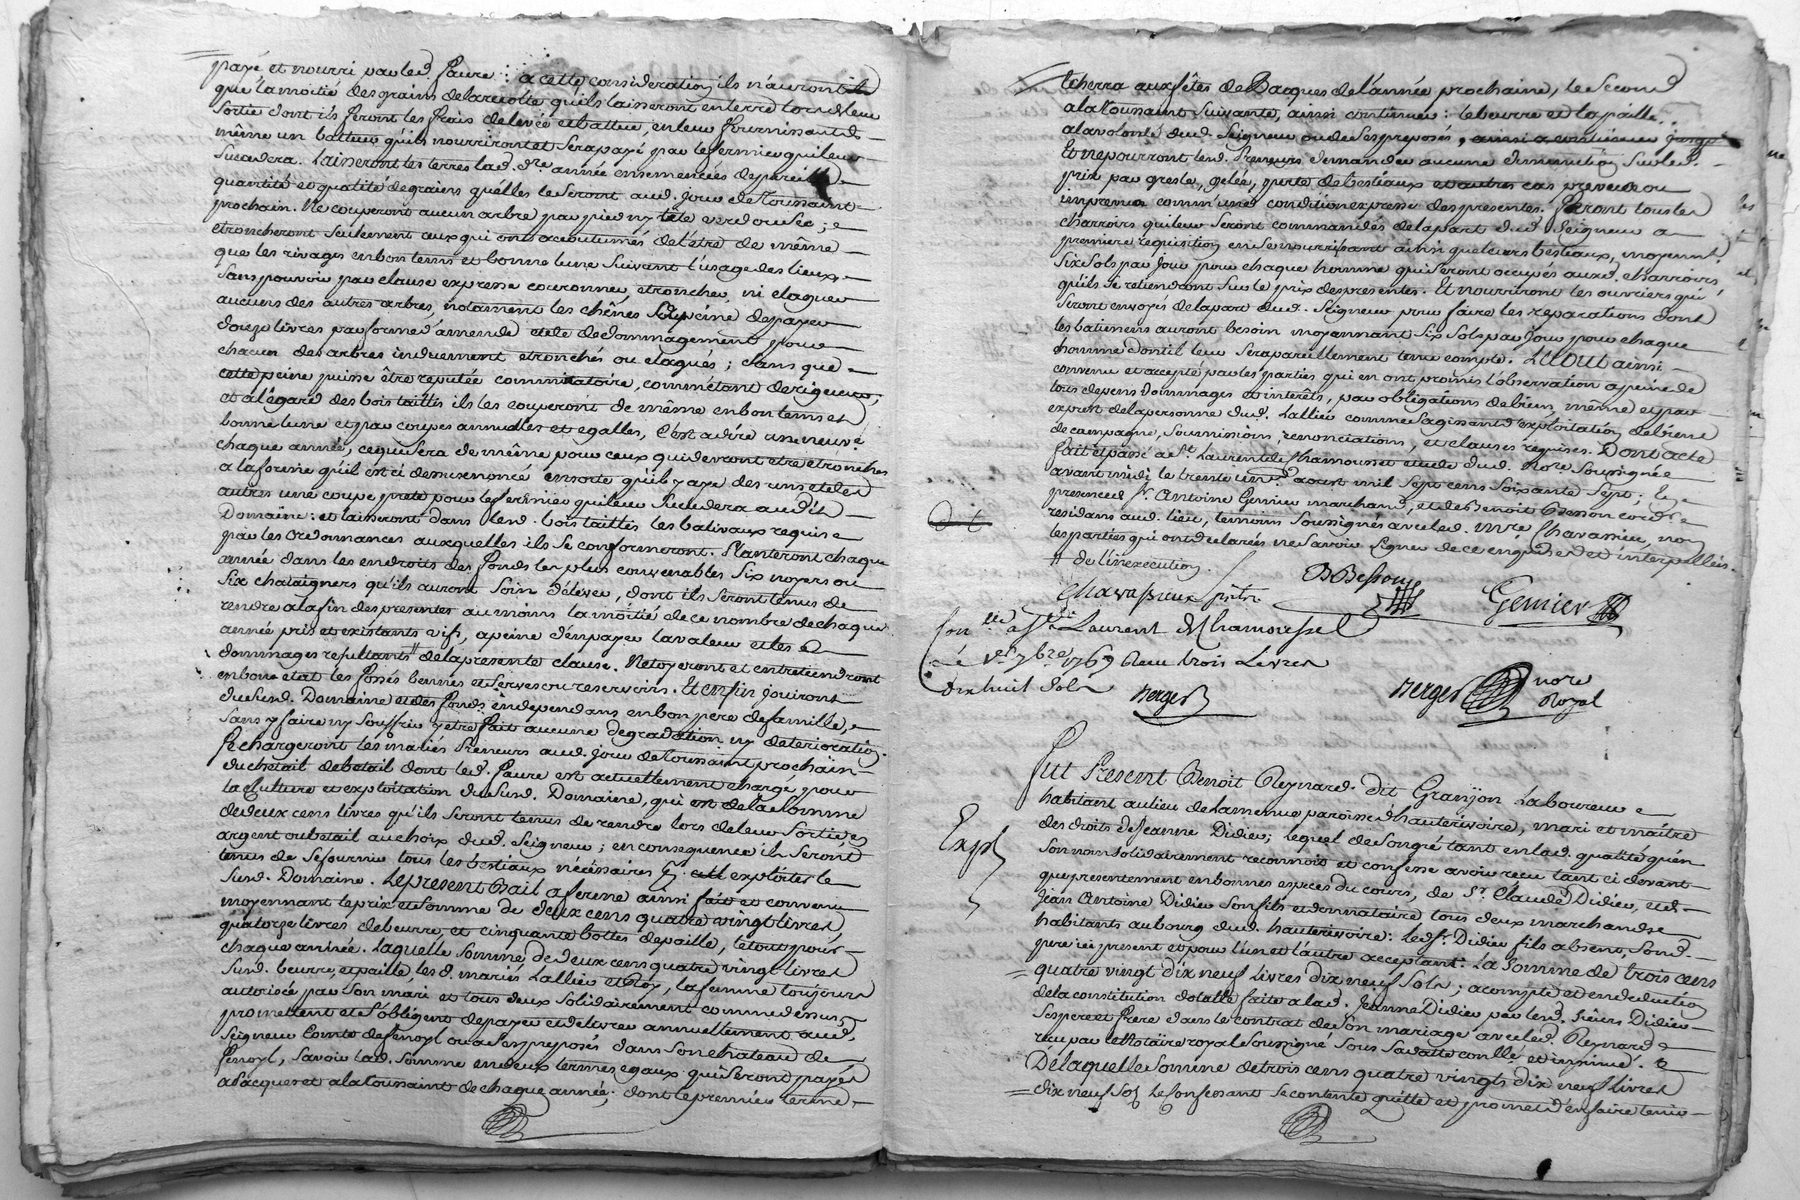 payé et nourri par led. Faure : a cette consideration ils n'auront
que la moitié des grains de la recolte qu'ils laisseront en terre lors de leur
sortie dont ils feront les frais de levée et battue, en leur fournissant de
même un batteur qu'ils nourriront et sera payé par le fermier qui leur
succedera. Laisseront les terres lad. dre. année ensemencées de pareille
quantité et qualité de grains qu'elles le seront aud. jour de Toussaint
prochain. Ne couperont aucun arbre par pied ny tête verd ou sec ; e
etroncheront seulement ceux qui ont accoutumés de l'être de même
que les rivages en bon tems et bonne lune suivant l'usage des lieux
sans pouvoir par clause expresse couronner, etroncher, ni elaguer
aucuns des autres arbres, notament les chênes a peine de payer
douze livres par forme d'amende et de dedommagement pour
chacun des arbres induement etronchés ou elagués ; sans que
cette peine puisse être reputée comminatoire, comm'etant de rigueur,
et a l'egard des bois taillis ils les couperont de même en bon tems et
bonne lune et par coupes annuelles et egalles, c'est a dire une neuve
chaque année, ce qui sera de même pour ceux qui devront etre etronchés
a la forme qu'il est ci dessus enoncé ensorte qu'il y aye des uns et des
autres une coupe prete pour le fermier qui leur succedera audit
Domaine : et laisseront dans lesd. bois taillis les balivaux requis
par les ordonnances auxquelles ils se conformeront. Planteront chaque
année dans les endroits des fonds les plus convenables six noyers ou
six chataigners qu'ils auront soin d'élever, dont ils seront tenus de
rendre a la fin des presentes au moins la moitié de ce nombre de chaque
année pris et existants vifs, a peine d'en payer la valeur et les
dommages resultants de la presente clause. Netoyeront et entretiendront
en bon etat les fossés bennes et serves ou reservoirs. Et enfin jouiront
du susd. Domaine et des fonds en dependans en bon pere de famille,
sans y faire ny souffrir y etre fait aucune degradation ny deterioration.
Se chargeront les mariés Preneurs aud. jour de Toussaint prochain
du cheptail de betail dont led. Faure est actuellement chargé pour
la culture et exploitation du susd. Domaine, qui est de la somme
de deux cens livres qu'ils seront tenus de rendre lors de leur sortie en
argent ou betail au choix dud. Seigneur ; en consequence ils seront
tenus de se fournir tous les bestiaux nécéssaires p. exploiter le
susd. Domaine. Le present Bail a ferme ainsi fait et convenu
moyennant le prix et somme de deux cens quatre vingt livres,
quatorze livres de beurre, et cinquante bottes de paille, le tout pour
chaque année. Laquelle somme de deux cens quatre vingt livres
susd. beurre, et paille lesd. mariés Lallier et Roy, la femme toujours
autorisée par son mari et tous deux solidairement comme dessus,
promettent et s'obligent de payer et delivrer annuellement aud.
Seigneur Comte de Fenoyl ou a ses preposés dans son chateau de
Fenoyl, savoir lad. somme en deux termes egaux qui seront payés
a Pacques et a la Toussaint de chaque année ; dont le premier terme
echerra aux fêtes de Pacques de l'année prochaine, le second
a la Toussaint suivante, ainsi continuer : le beurre et la paille
a la volonté dud. Seigneur ou de ses preposés, ainsi a continuer jusqu
Et ne pourront lesd. Preneurs demander aucune diminution sur led.
prix par gresle, gelée, perte de bestiaux et autres cas prevus ou
imprevus comm'une condition expresse des presentes. Feront tous les
charrois qui leur seront commandés de la part dud. Seigneur a
premiere requisition en se nourrissant ainsi que leurs bestiaux, moyennt.
six sols par jour pour chaque homme qui seront occupés auxd. charrois,
qu'ils se retiendront sur le prix des presentes. Et nourriront les ouvriers qui
seront envoyés de la part dud. Seigneur pour faire les reparations dont
les batimens auront besoin moyennant six sols par jour pour chaque
homme dont il leur sera pareillement tenu compte. Le tout ainsi
convenu et accepté par les parties qui en ont promis l'observation a peine de
tous depens dommages et interêts, par obligations de biens, même et par
exprès de la personne dud. Lallier comme s'agissant d'exploitation de biens
de campagne, soumissions, renonciations, et clauses requises. Dont acte
fait et passé a St. Laurent de Chamousset etude dud. Nore soussigné
avant midi le trente un aoust mil sept cens soixante sept : en
presence de Sr. Antoine Gemier marchand, et de Benoit Besson cord
residans aud. lieu, temoins soussignés avec led. Mre. Chavassieu, non
les parties qui ont declarés ne savoir signer de ce enquis et interpellés.
// de l'inexecution.
d t
Chavassieux
B Besson
Gemier
Con.llé a St. Laurent de Chamousset
le 7bre 1767 Reçu trois Livres
dix huit Sols
Berger
Berger nore
Royal
Expé
Fut Present Benoit Reynard dit Granjon Laboureur
habitant au lieu de Lamenue paroisse d'hauterivoire, mari et maître
des droits de Jeanne Didier ; lequel de son gré tant en lad. qualité qu'en
son nom solidairement reconnoit et confesse avoir reçu tant ci devant
que presentement en bonnes especes du cours, de Sr. Claude Didier, et de
Jean Antoine Didier son fils et donnataire tous deux marchands
habitants au bourg dud. hauterivoire : led. Sr. Didier fils absent, sond.
pere ici present et pour l'un et l'autre acceptant : La somme de trois cens
quatre vingt dix neuf livres dix neuf sols ; a compte et en deduction
de la constitution dotalle faite a lad. Jeanne Didier par lesd. Sieurs Didier
ses pere et frere dans le contrat de son mariage avec led. Reynard
reçu par le Notaire royal soussigné sous sa datte conllé et insinué.
De laquelle somme de trois cens quatre vingts dix neuf livres
dix neuf sols le confessant se contente quitte et promet d'en faire tenir